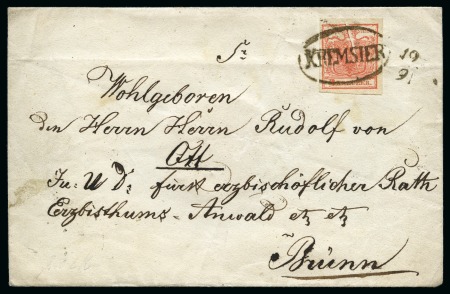 KREMSIER
19
9/
Sr
Wohlgeboren
den Herrn Herrn Rudolf von
Ott
Ju: U D: fürst erzbischöflicher Rath
Erzbisthums-Anwald etz etz
Brünn